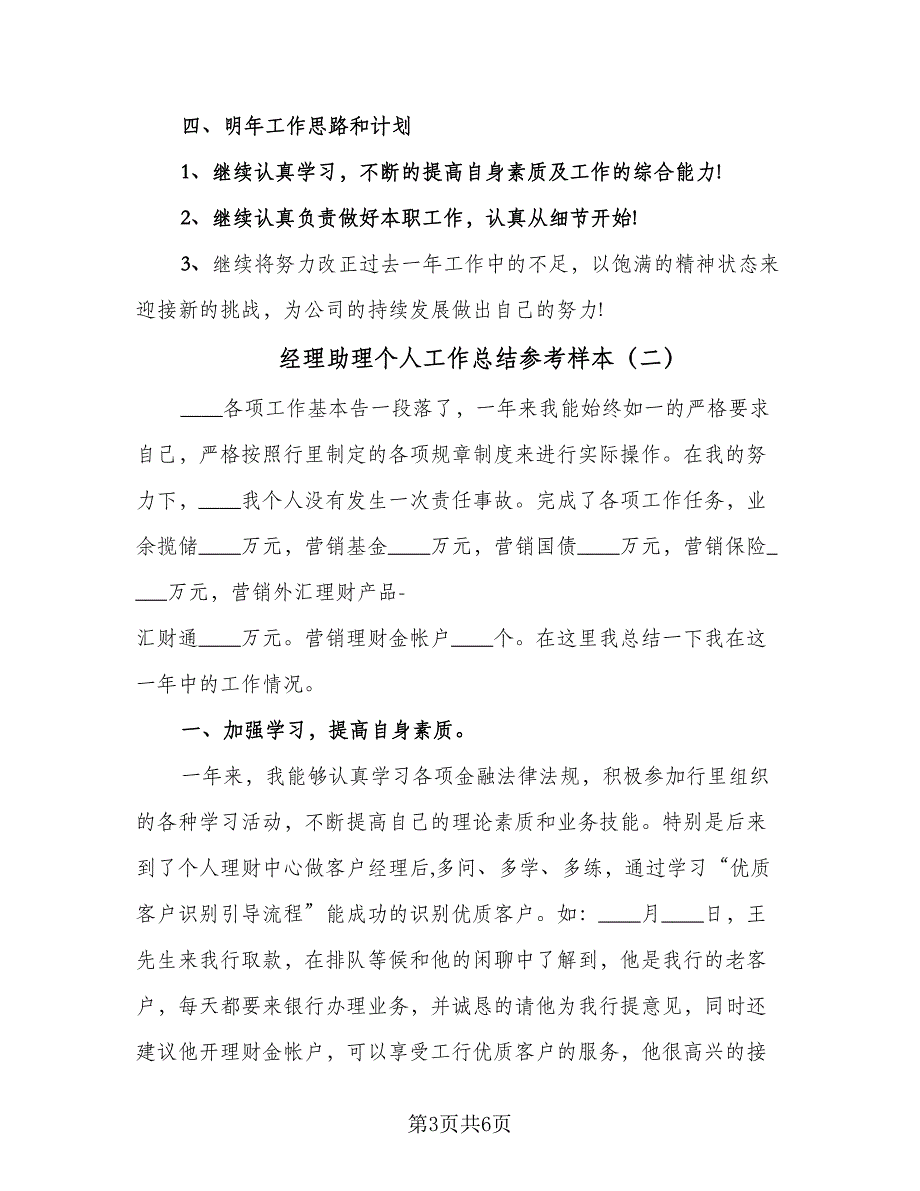 四、明年工作思路和计划
1、继续认真学习，不断的提高自身素质及工作的综合能力!
2、继续认真负责做好本职工作，认真从细节开始!
3、继续将努力改正过去一年工作中的不足，以饱满的精神状态来
迎接新的挑战，为公司的持续发展做出自己的努力!
经理助理个人工作总结参考样本（二）
____各项工作基本告一段落了，一年来我能始终如一的严格要求
自己，严格按照行里制定的各项规章制度来进行实际操作。在我的努
力下，____我个人没有发生一次责任事故。完成了各项工作任务，业
余揽储____万元，营销基金____万元，营销国债____万元，营销保险_
___万元，营销外汇理财产品-
汇财通____万元。营销理财金帐户____个。在这里我总结一下我在这
一年中的工作情况。
一、加强学习，提高自身素质。
一年来，我能够认真学习各项金融法律法规，积极参加行里组织
的各种学习活动，不断提高自己的理论素质和业务技能。特别是后来
到了个人理财中心做客户经理后,多问、多学、多练，通过学习“优质
客户识别引导流程”能成功的识别优质客户。如：____月____日，王
先生来我行取款，在排队等候和他的闲聊中了解到，他是我行的老客
户，每天都要来银行办理业务，并诚恳的请他为我行提意见，同时还
建议他开理财金帐户，可以享受工行优质客户的服务，他很高兴的接
第3页共6页